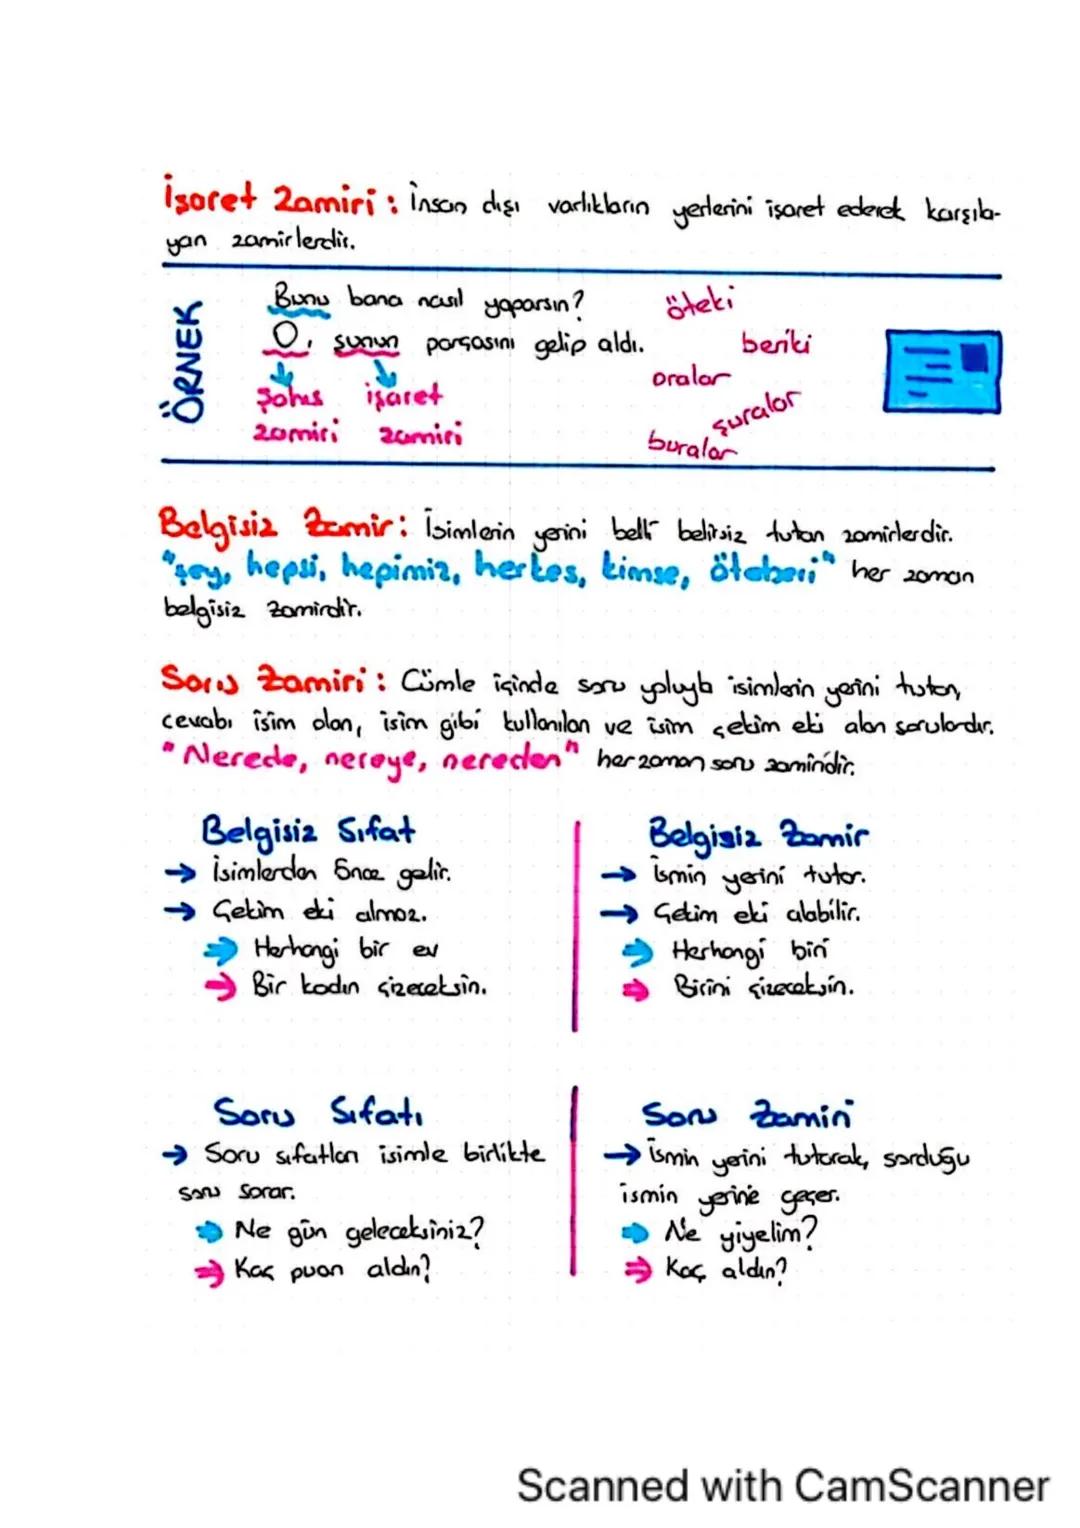 İşaret Zamiri : İnsan dışı varlıkların yerlerini işaret ederek karşıla-
yan zamirlerdir.
ÖRNEK
Bunu bana nasıl yaparsın?
O, şunun parçasını gelip aldı.
şahıs zamiri
işaret zamiri
öteki
beriki
oralar
şuralar
buralar
Belgisiz Zamir : İsimlerin yerini belli belirsiz tutan zamirlerdir.
"şey, hepsi, hepimiz, herkes, kimse, öteberi" her zaman
belgisiz zamirdir.
Soru Zamiri : Cümle içinde soru yoluyla isimlerin yerini tutan,
cevabı isim olan, isim gibi kullanılan ve isim çekim eki alan sorulardır.
"Nerede, nereye, nereden" her zaman soru zamiridir.
Belgisiz Sıfat
→ İsimlerden önce gelir.
→ Çekim eki almaz.
⇒ Herhangi bir ev
⇒ Bir kadın çizeceksin.
Belgisiz Zamir
→ İsmin yerini tutar.
→ Çekim eki alabilir.
⇒ Herhangi biri
⇒ Birini çizeceksin.
Soru Sıfatı
→ Soru sıfatları isimle birlikte
soru sorar.
⇒ Ne gün geleceksiniz?
⇒ Kaç puan aldın?
Soru Zamiri
→ İsmin yerini tutarak, sorduğu
ismin yerine geçer.
⇒ Ne yiyelim?
⇒ Kaç aldın?
Scanned with CamScanner